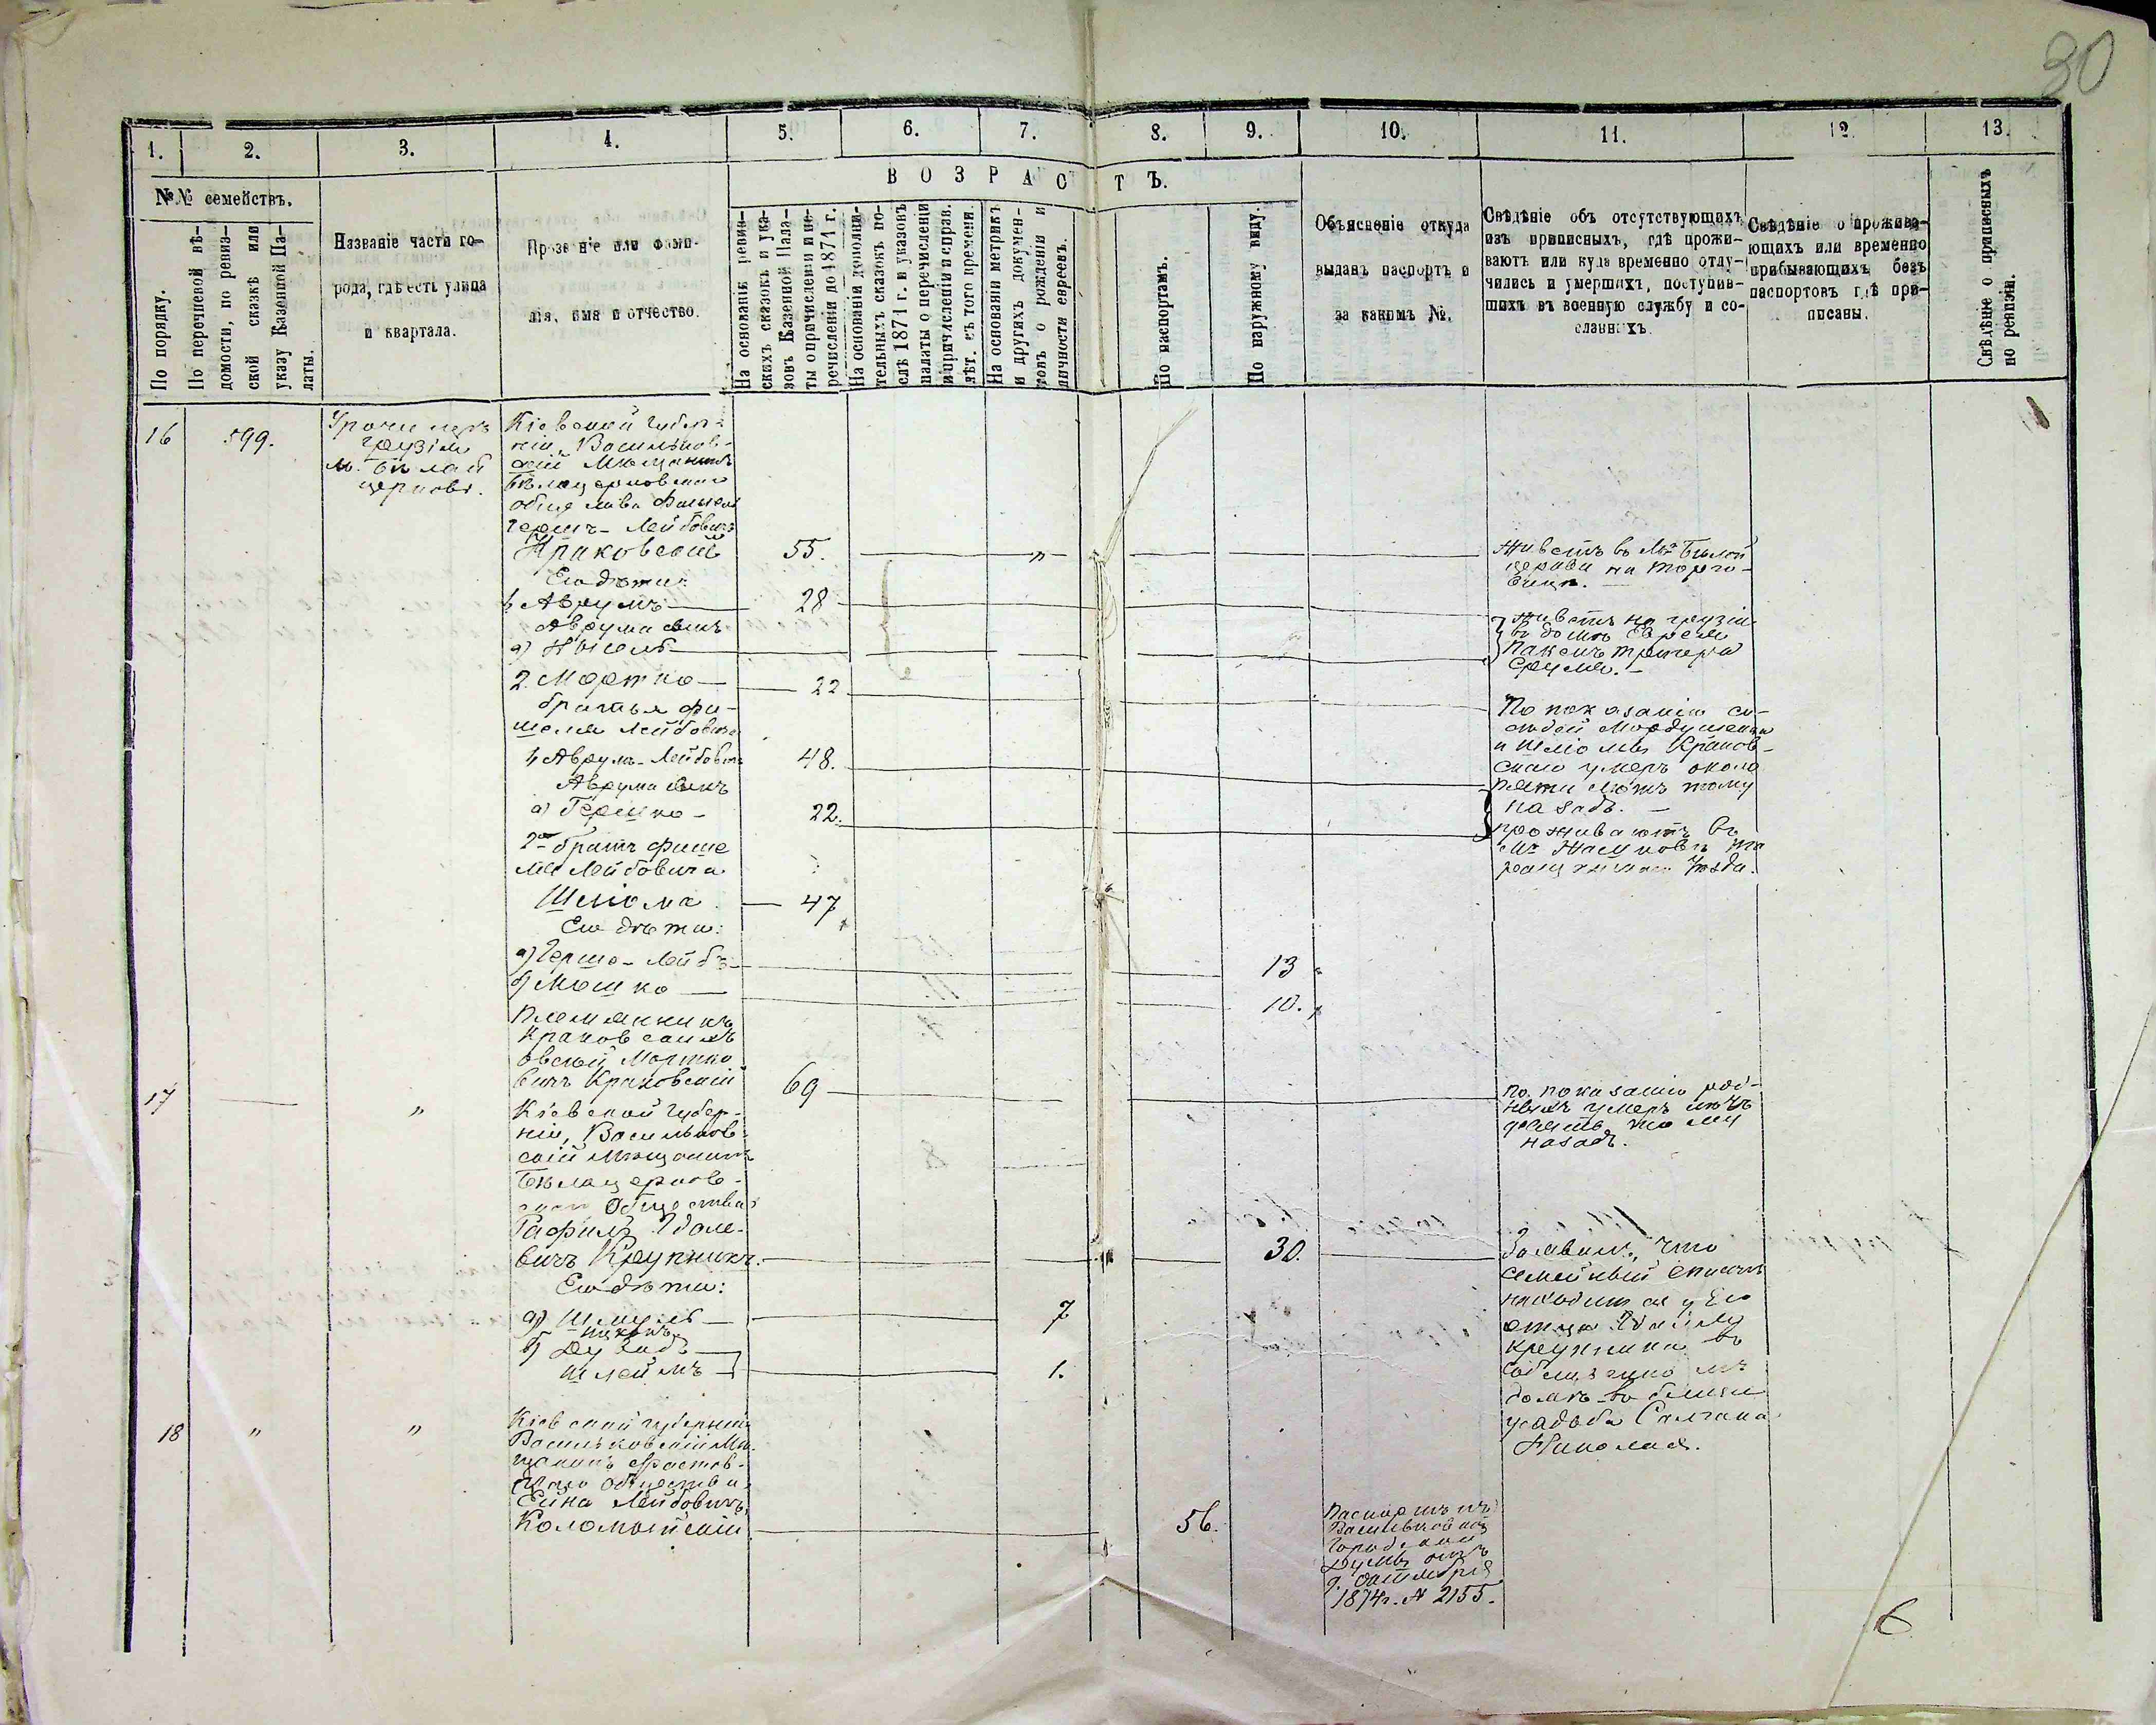 30
1.
2.
3.
4.
5.
6.
7.
8.
9.
10.
11.
12.
13.
№№ семействъ.
По порядку.
По перечневой вѣ-
домости, по ревиз-
ской сказкѣ или
указу Казенной Па-
латы.
Названіе части го-
рода, гдѣ есть улица
и квартала.
Прозваніе или фами-
лія, имя и отчество.
ВОЗРАСТЪ.
На основаніи ревиз-
скихъ сказокъ и ука-
зовъ Казенной Пала-
ты о причисленіи и пе-
речисленіи до 1871 г.
На основаніи дополни-
тельныхъ сказокъ по-
слѣ 1871 г. и указовъ
палаты о перечисленіи
и причисленіи и справ.
лѣт. съ того времени.
На основаніи метрикъ
и другихъ докумен-
товъ о рожденіи и
личности евреевъ.
По паспортамъ.
По наружному виду.
Объясненіе откуда
выданъ паспортъ и
за какимъ №.
Свѣдѣніе объ отсутствующихъ
изъ приписныхъ, гдѣ прожи-
ваютъ или куда временно отлу-
чились и умершихъ, поступив-
шихъ въ военную службу и со-
сланныхъ.
Свѣдѣніе о прожива-
ющихъ или временно
прибывающихъ безъ
паспортовъ гдѣ при-
писаны.
Свѣдѣніе о приписныхъ
по ревизіи.
16
599.
м. Бѣлой
церкви.
Кіевской губер-
ніи, Васильков-
скій Мѣщанинъ
Бѣлоцерковскаго
общества Фишель
Гершъ-Лейбовичъ
Краковскій
55.
"
Живетъ въ М. Бѣлой
церкви на торго-
вицѣ.
Его дѣти:
1, Аврумъ
28
Аврума сынъ
а)
Живетъ на
въ домѣ Еврея
2. Мортко
22
братья Фи-
шеля Лейбовича
1, Аврумъ-Лейбовичъ
48.
По показанію
и Шліомы Краков-
скаго умеръ около
пяти лѣтъ тому
назадъ.
Аврума сынъ
а) Гершко
22.
проживаютъ въ
уѣзда.
2й братъ Фише
ля Лейбовича
Шліома
47
Его дѣти:
а) Герш-Лейбъ
13
б) Мошко
10.
Племянникъ
Мортко
вичъ Краковскій
69
По показанію род-
ныхъ умеръ лѣтъ
десять тому
назадъ.
17
"
Кіевской губер-
ніи, Васильков-
скій Мѣщанинъ
Бѣлацерков-
скаго Общества
вичъ Крупникъ.
30.
Заявилъ, что
семейный списокъ
находится у Его
отца
Крупника въ
домѣ
усадьбы
Николая.
Его дѣти:
а) Шмуль
7
б)
1.
18
"
"
Кіевской губерніи
Васильковскій Мѣ-
щанинъ
Общества
Лейбовичъ
Коломыйскій
56.
Паспортъ изъ
Васильковской
Городской
Думы отъ
9.
1874г. № 2155.
6